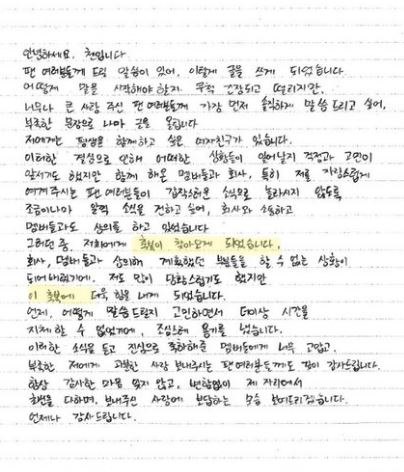 안녕하세요. 첸입니다
팬 여러분들께 드릴 말씀이 있어, 이렇게 글을 쓰게 되었습니다
어떻게 말을 시작해야 할지 무척 긴장되고 떨리지만,
너무나 큰 사랑 주신 팬 여러분들께 가장 먼저 솔직하게 말씀드리고 싶어,
부족한 문장으로 나마 글을 올립니다
저에게는 평생을 함께하고 싶은 여자친구가 있습니다.
이러한 결심으로 인해 어떠한 상황들이 일어날지 걱정과 고민이
앞서기도 했지만 함께 해온 멤버들과 회사, 특히 저를 자랑스럽게
여겨주시는 팬 여러분들이 갑작스러운 소식으로 놀라시지 않도록
조금이나마 일찍 소식을 전하고 싶어, 회사와 소통하고
멤버들과도 상의를 하고 있었습니다
그러던 중. 저희에게 축복이 찾아오게 되었습니다,
회사, 멤버들과 상의해 계획했던 부분들을 할 수 없는 상황이
되어버렸기에. 저도 많이 당황스럽기도 했지만
이 축복에 더욱 힘을 내게 되었습니다.
언제, 어떻게 말씀드릴지 고민하면서 더이상 시간을
지체 할 수 없었기에, 조심스레 용기를 냈습니다.
이러한 소식을 듣고 진심으로 축하해준 멤버들에게 너무 고맙고,
부족한 저에게 과분한 사랑 보내주시는 팬 여러분들께도 깊이 감사드립니다.
항상 감사한 마음 잊지 않고, 변함없이 제 자리에서
최선을 다하며, 보내주신 사랑에 보답하는 모습 보여드리겠습니다.
언제나 감사드립니다.